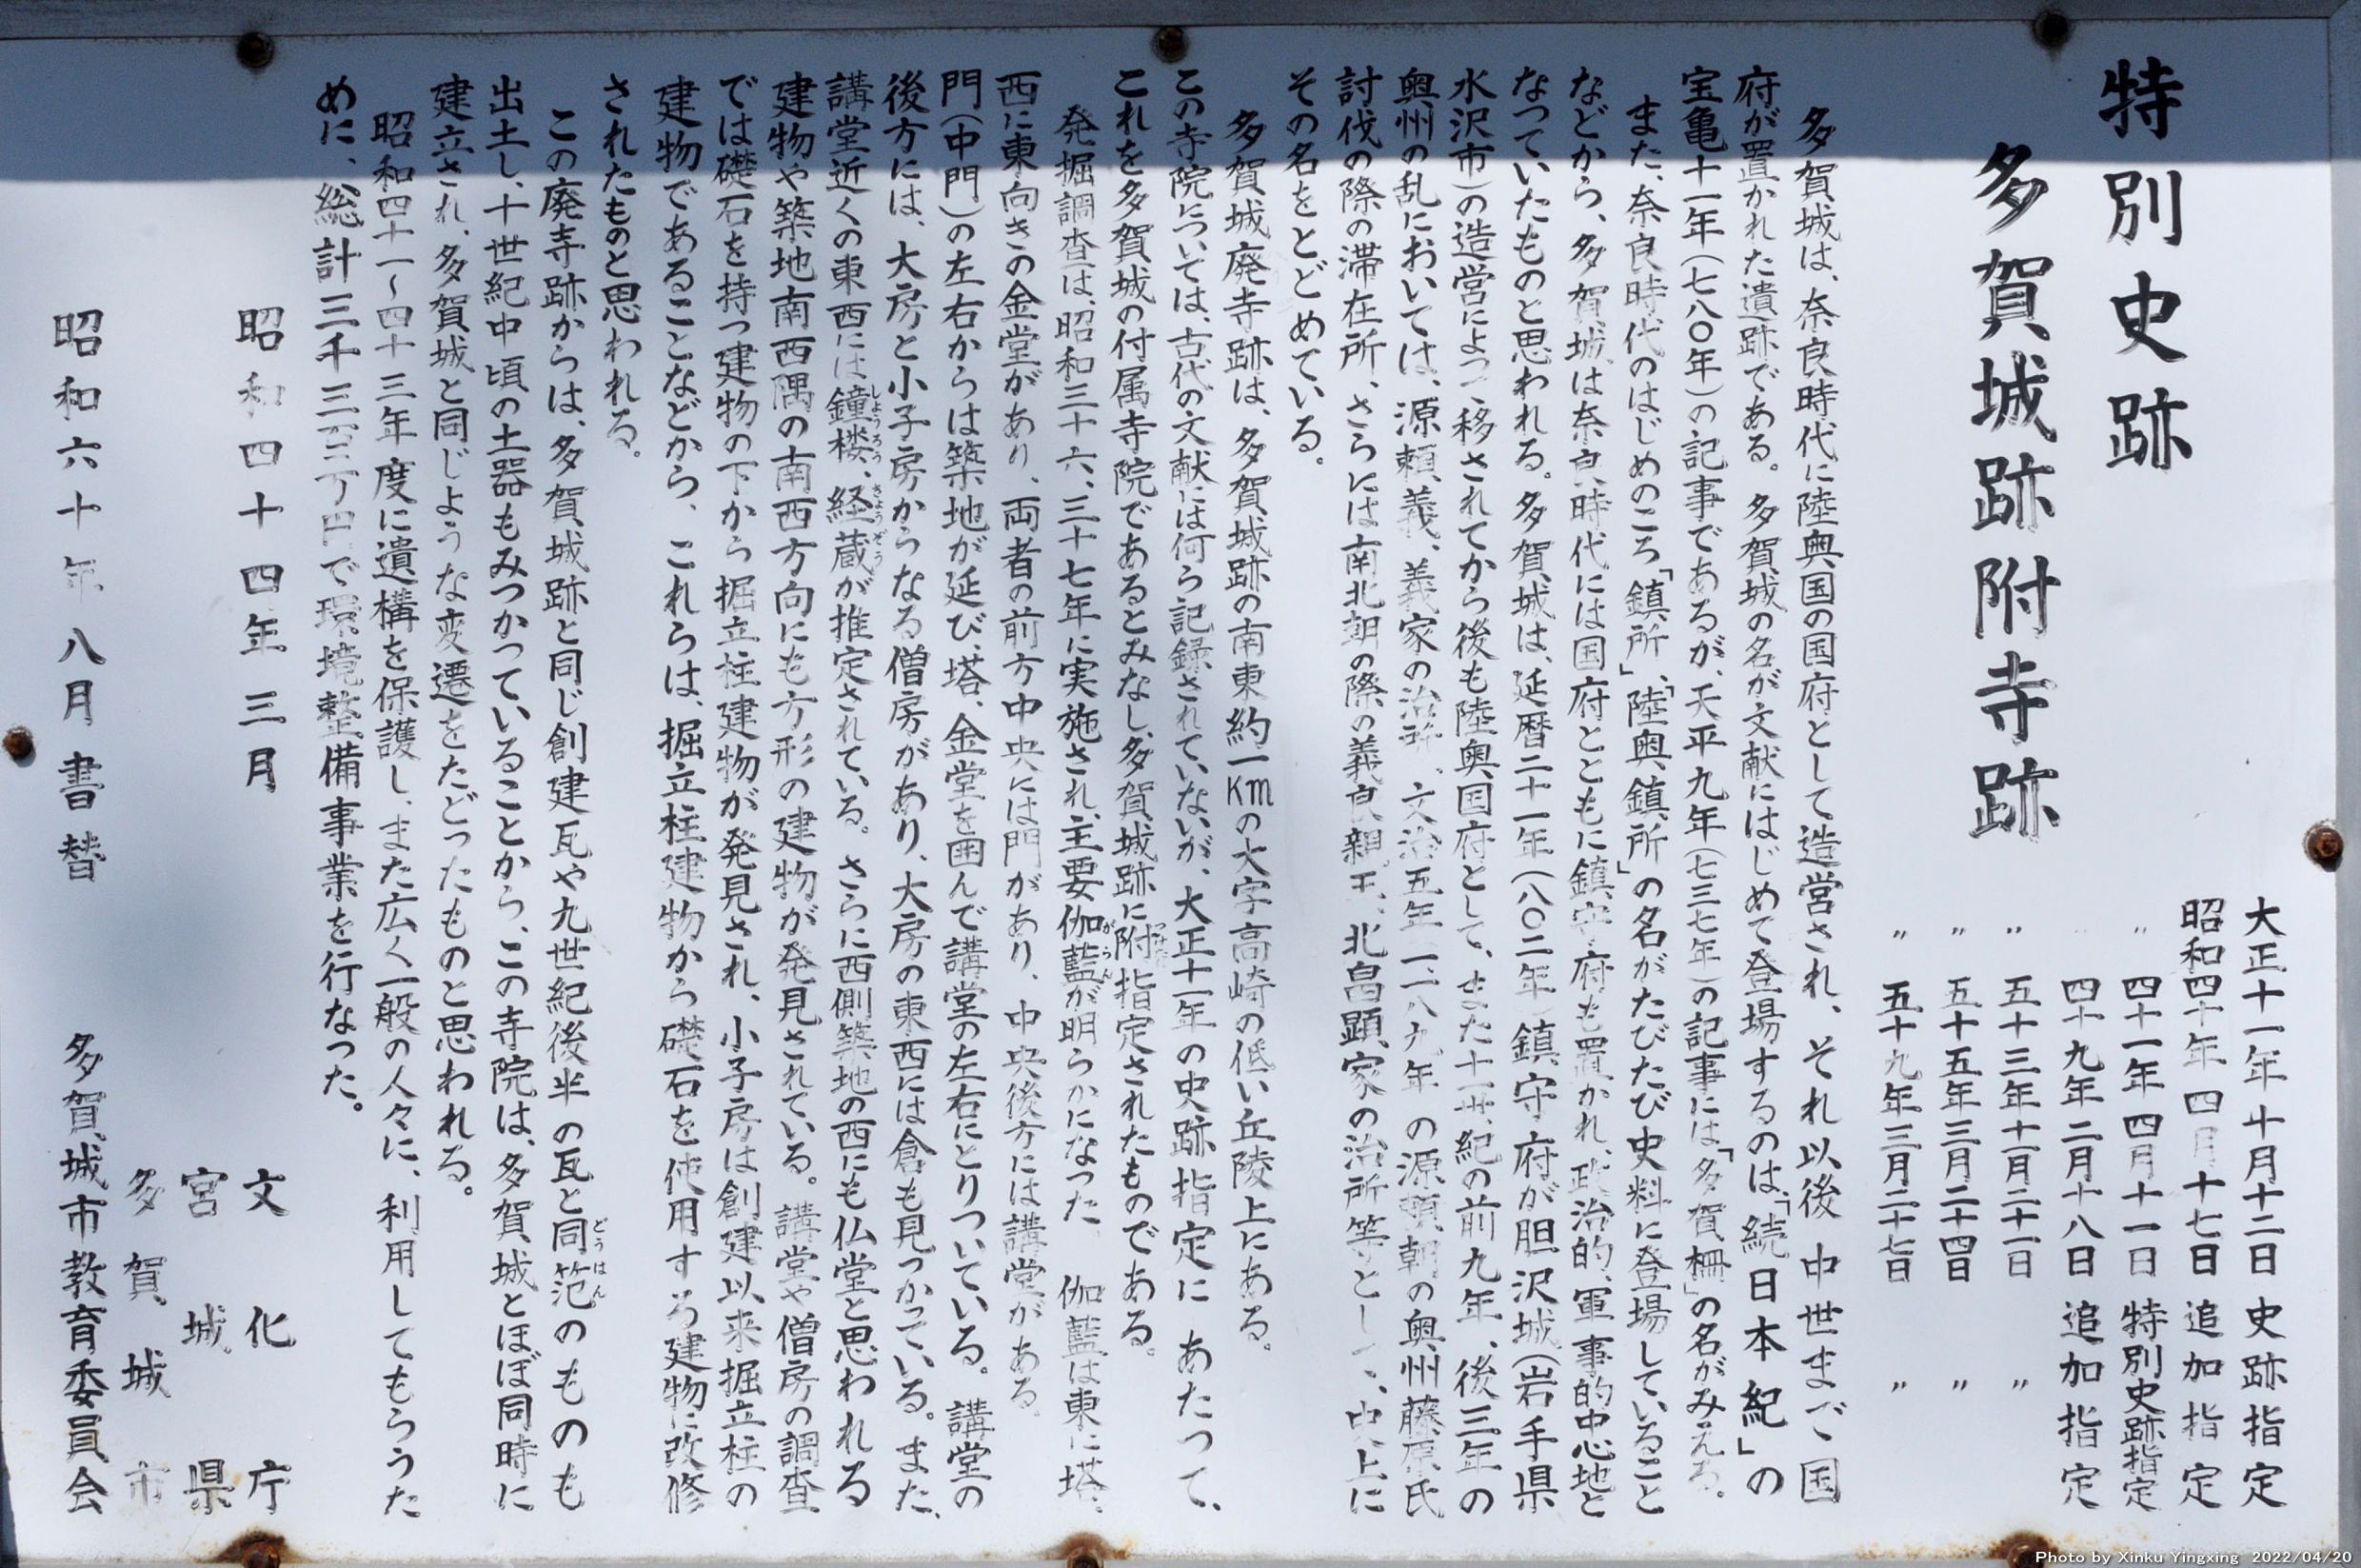 特別史跡
多賀城跡附寺跡
大正十一年十月十二日 史跡指定
昭和四十年四月十七日 追加指定
〃 四十一年四月十一日 特別史跡指定
四十九年二月十八日 追加指定
〃 五十三年十一月二十一日 〃
〃 五十五年三月二十四日 〃
〃 五十九年三月二十七日 〃
多賀城は、奈良時代に陸奥国の国府として造営され、それ以後 中世まで 国
府が置かれた遺跡である。多賀城の名が文献にはじめて登場するのは、「続日本紀」の
宝亀十一年(七八〇年)の記事であるが、天平九年(七三七年)の記事には「多賀柵」の名がみえる。
また、奈良時代のはじめのころ「鎮所」、「陸奥鎮所」の名がたびたび史料に登場していること
などから、多賀城は奈良時代には国府とともに鎮守府も置かれ、政治的、軍事的中心地と
なっていたものと思われる。多賀城は、延暦二十一年(八〇二年 鎮守府が胆沢城(岩手県
水沢市)の造営によっ 移されてから後も陸奥国府として、また十一世紀の前九年、後三年の
奥州の乱においては、源頼義、義家の治 、文治五年一一八九年 の源頼朝の奥州藤原氏
討伐の際の滞在所、さらには南北朝の際の義良親王、北畠顕家の治所等とし 、史上に
その名をとどめている。
多賀城廃寺跡は、多賀城跡の南東約一Kmの大字高崎の低い丘陵上にある。
この寺院については、古代の文献には何ら記録されていないが、大正十一年の史跡指定に あたって、
これを多賀城の付属寺院であるとみなし、多賀城跡に附指定されたものである。
発掘調査は、昭和三十六、三十七年に実施され、主要伽藍がらんが明らかになった 伽藍は東に塔、
西に東向きの金堂があり、両者の前方中央には門があり、中央後方には講堂がある。
門(中門)の左右からは築地が延び、塔、金堂を囲んで講堂の左右にとりついている。講堂の
後方には、大房と小子房からなる僧房があり、大房の東西には倉も見つかっている。また、
講堂近くの東西には鐘楼しょうろう、経蔵きょうぞうが推定されている。さらに西側築地の西にも仏堂と思われる
建物や築地南西隅の南西方向にも方形の建物が発見されている。講堂や僧房の調査
では礎石を持つ建物の下から掘立柱建物が発見され、小子房は創建以来掘立柱の
建物であることなどから、これらは、掘立柱建物から礎石を使用する建物に改修
されたものと思われる。
この廃寺跡からは、多賀城跡と同じ創建瓦や九世紀後半の瓦と同笵どうはんのものも
出土し、十世紀中頃の土器もみつかっていることから、この寺院は、多賀城とほぼ同時に
建立され、多賀城と同じような変遷をたどったものと思われる。
昭和四十一~四十三年度に遺構を保護し、また広く一般の人々に、利用してもらうた
めに、総計三千三百万円で環境整備事業を行なった。
昭和四十四年三月
文化庁
宮城県
多賀城市
昭和六十年八月書替
多賀城市教育委員会
Photo by Xinku Yingxing 2022/04/20